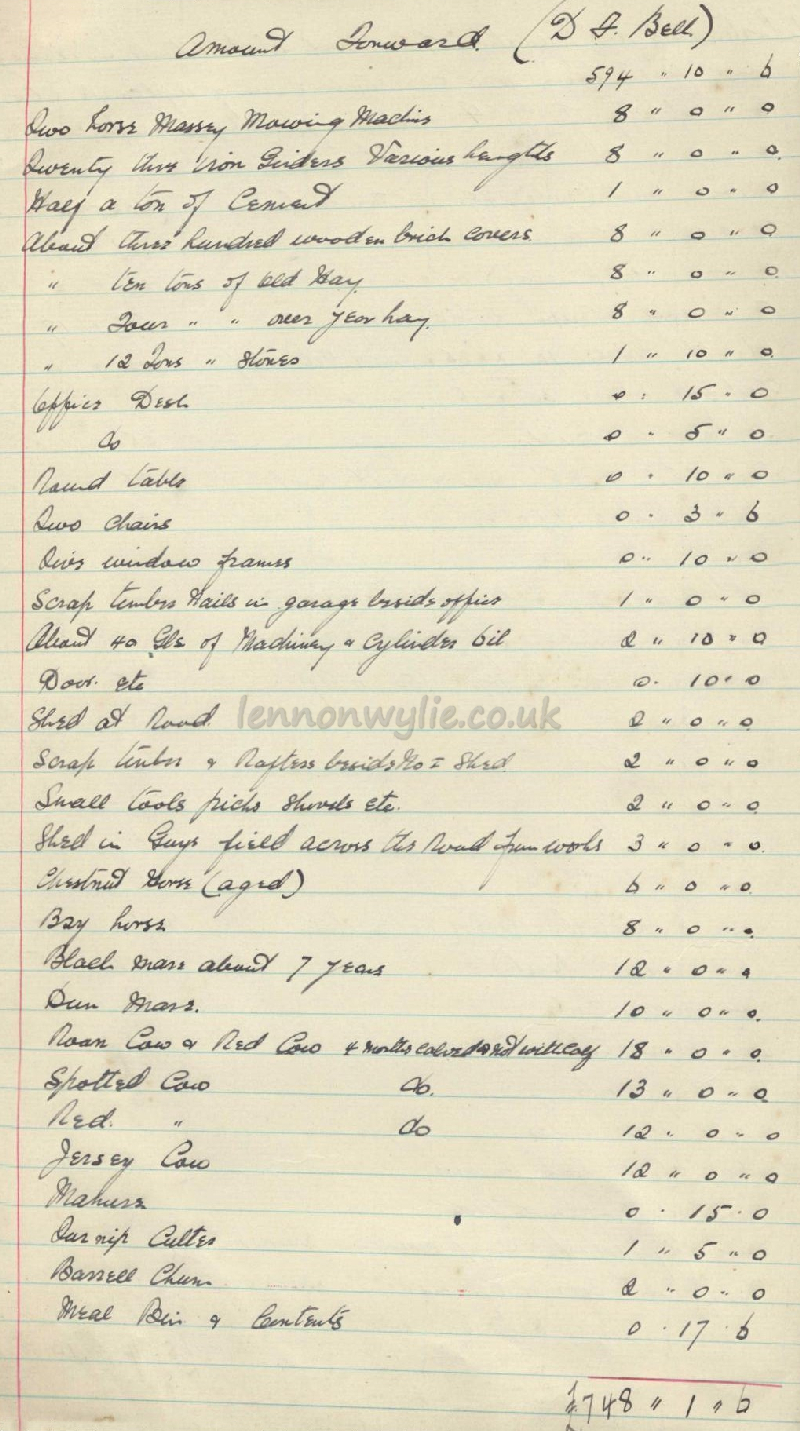 Amount Forward (D F. Bell)
594 " 10 " 6
Two horse Massey Mowing Machin 8 " 0 " 0
Twenty three iron Girders Various lengths 8 " 0 " 0
Half a ton of Cement 1 " 0 " 0
About three hundred wooden brick covers 8 " 0 " 0
" ten tons of old Hay 8 " 0 " 0
" Four " " over year hay 8 " 0 " 0
" 12 Tons " Stones 1 " 10 " 0
Office Desk 0 " 15 " 0
Do 0 " 5 " 0
Round table 0 " 10 " 0
Two chairs 0 " 3 " 6
window frames 0 " 10 " 0
Scrap timber Nails in garage beside office 1 " 0 " 0
About 40 Gls of Machinery & Cylinder oil 2 " 10 " 0
Door etc 0 " 10 " 0
Shed at Road 2 " 0 " 0
lennonwylie.co.uk
Scrap timber & Rafters beside No I Shed 2 " 0 " 0
Small tools picks shovels etc. 2 " 0 " 0
Shed in Guys field across the Road from works 3 " 0 " 0
Chestnut Horse (aged) 6 " 0 " 0
Bay horse 8 " 0 " 0
Black mare about 7 years 12 " 0 " 0
Dun Mare. 10 " 0 " 0
Roan Cow & Red Cow 4 months calved & not with calf 18 " 0 " 0
Spotted Cow Do. 13 " 0 " 0
Red " Do 12 " 0 " 0
Jersey Cow 12 " 0 " 0
Manure 0 " 15 " 0
Turnip Cutter 1 " 5 " 0
Barrell Churn 2 " 0 " 0
Meal Bin & Contents 0 " 17 " 6
£748 " 1 " 6